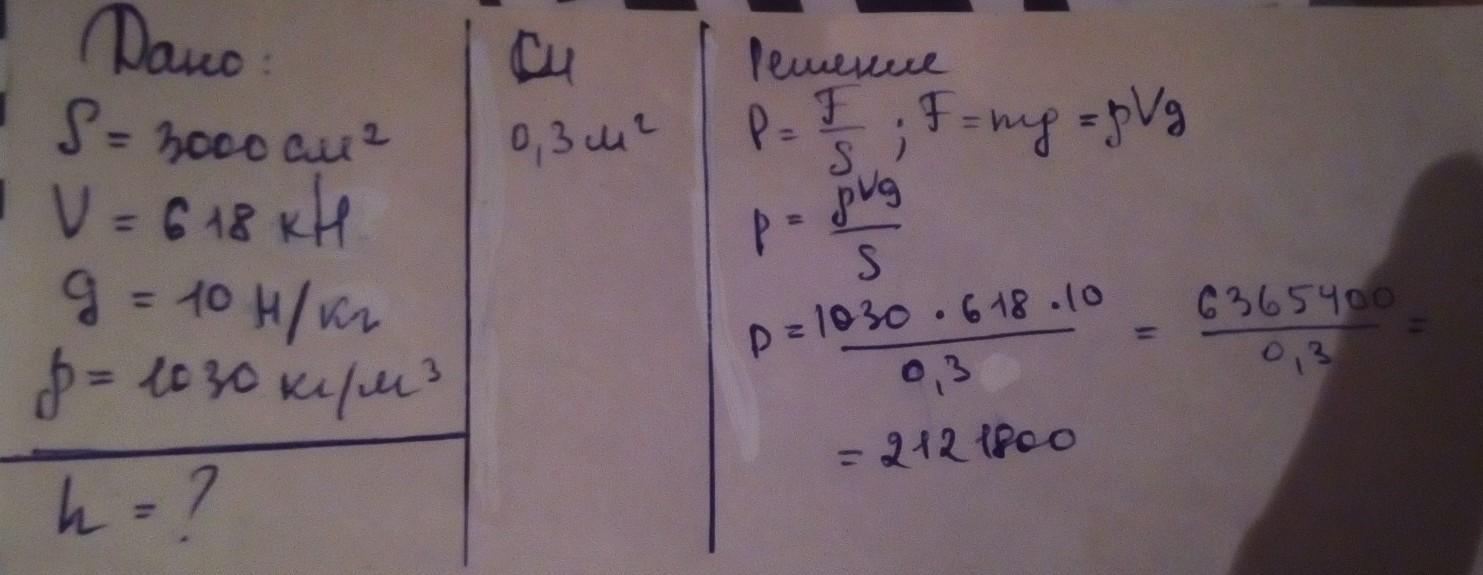 Дано:
S = 3000 см²
V = 618 кН
g = 10 Н/кг
ρ = 1030 кг/м³
h = ?
Си
0,3 м²
Решение
P = F/S ; F = mg = ρVg
p = ρVg/S
p = 1030 · 618 · 10/0,3 = 6365400/0,3 =
= 2121800